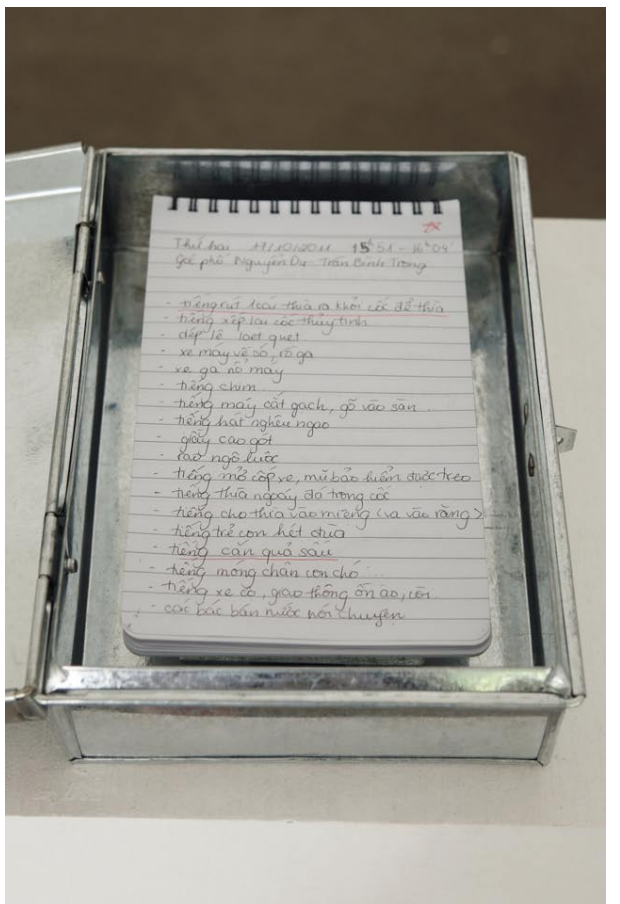 Thứ hai 17/10/2011 15h51 - 16h04'
Góc phố Nguyễn Du - Trần Bình Trọng
- tiếng rút 1 cái thìa ra khỏi cốc để thìa
- tiếng xếp lại cốc thủy tinh
- dép lê loẹt quẹt
- xe máy về số, rồ ga
- xe ga nổ máy
- tiếng chim...
- tiếng máy cắt gạch, gõ vào sàn...
- tiếng hát nghêu ngao
- giầy cao gót
- rao ngô luộc
- tiếng mở cốp xe, mũ bảo hiểm được treo
- tiếng thìa ngoáy đá trong cốc
- tiếng cho thìa vào miệng <va vào răng>
- tiếng trẻ con hét đùa
- tiếng cắn quả sấu
- tiếng móng chân con chó ...
- tiếng xe cộ, giao thông ồn ào, còi...
- các bác bán nước nói chuyện